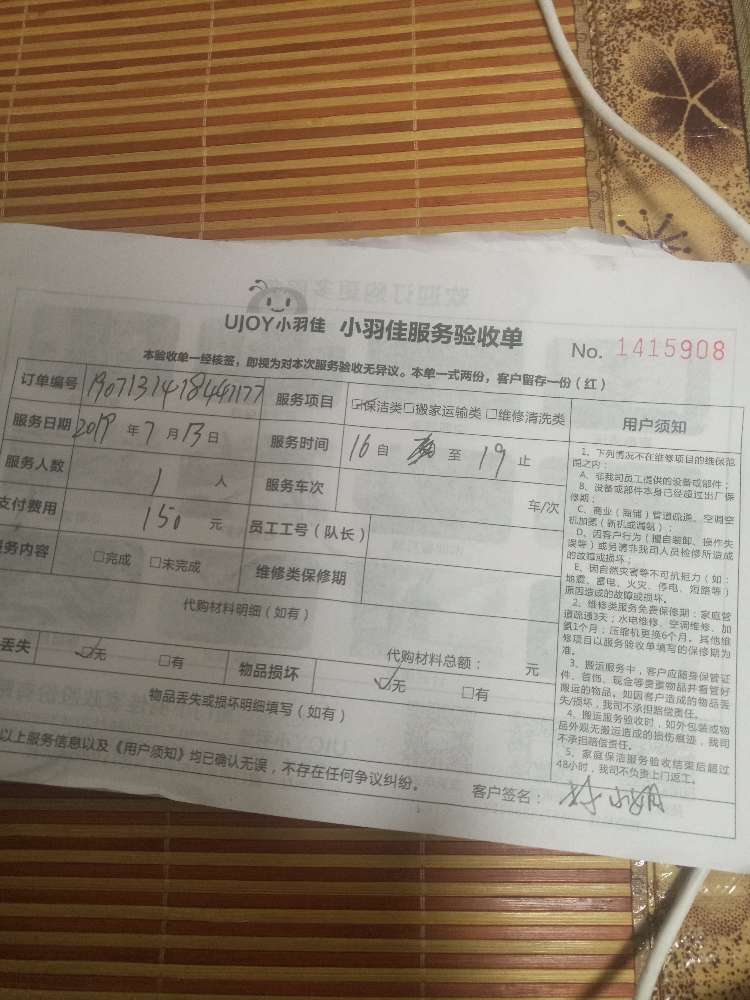 欢迎订购更多服务
UJOY小羽佳 小羽佳服务验收单
No. 1415908
本验收单一经核签,即视为对本次服务验收无异议。本单一式两份,客户留存一份(红)
订单编号 服务项目 ☑保洁类□搬家运输类 □维修清洗类
服务日期 2019 年 7 月 13 日 服务时间 16 自 至 19 止
服务人数 1 人 服务车次 车/次
支付费用 150 元 员工工号(队长)
务内容 □完成 □未完成 维修类保修期
代购材料明细(如有)
代购材料总额: 元
丢失 ☑无 □有 物品损坏 ☑无 □有
物品丢失或损坏明细填写(如有)
以上服务信息以及《用户须知》均已确认无误,不存在任何争议纠纷。
客户签名:
用户须知
1、下列情况不在维修项目的维保范
围之内:
A、非我司员工提供的设备或部件;
B、设备或部件本身已经超过出厂保
修期;
C、商业(商铺)管道疏通、空调空
机加氨(新机或漏氨);
D、因客户行为(擅自装卸、操作失
误等)或另请非我司人员检修所造成
的故障或损坏;
E、因自然灾害等不可抗拒力(如:
地震、雷电、火灾、停电、短路等)
原因造成的故障或损坏。
2、维修类服务免费保修期:家庭管
道疏通3天;水电维修、空调维修、加
氨1个月;压缩机更换6个月。其他维
修项目以服务验收单填写的保修期为
准。
3、搬运服务中,客户应随身保管证
件、首饰、现金等贵重物品并看管好
搬运的物品。如因客户造成的物品丢
失/损坏,我司不承担赔偿责任。
4、搬运服务验收时,如外包装或物
品外观无搬运造成的损伤痕迹,我司
不承担赔偿责任。
5、家庭保洁服务验收结束后超过
48小时,我司不负责上门返工。